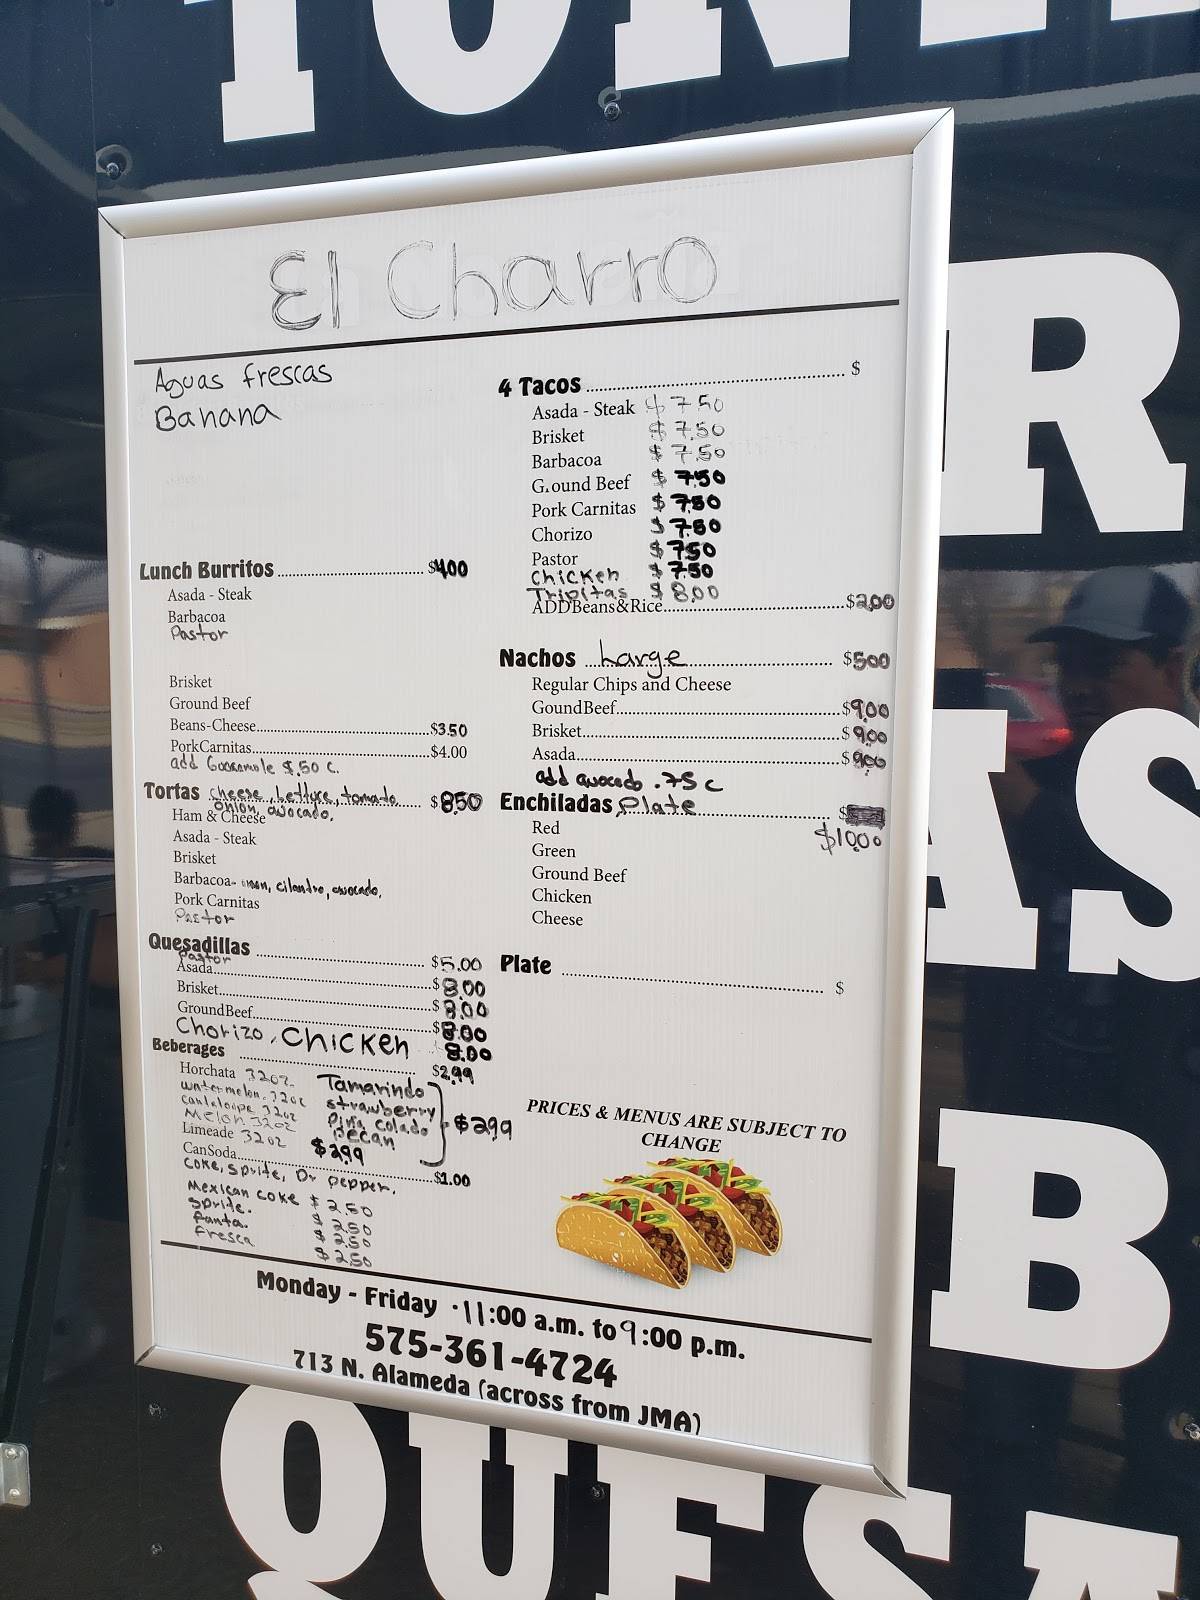 El Charro
Aguas frescas
Banana
Lunch Burritos $400
Asada - Steak
Barbacoa
Pastor
Brisket
Ground Beef
Beans-Cheese $3.50
PorkCarnitas $4.00
add $.50 c.
Tortas cheese, lettuce, tomato $850
onion, avocado,
Ham & Cheese
Asada - Steak
Brisket
Barbacoa- onion, cilantro, avocado,
Pork Carnitas
Pastor
Quesadillas $5.00
Pastor
Asada $8.00
Brisket $8.00
GroundBeef $8.00
Chorizo, Chicken 8.00
Beberages $2.99
Horchata 32oz
watermelon 32oz
canteloupe 32oz
Melon 32oz
Limeade 32oz
Tamarindo
strawberry
Piña colado
Pecan
$2.99
$299
CanSoda $1.00
coke, sprite, Dr pepper,
Mexican coke $2.50
sprite. $2.50
fanta. $2.50
fresca $2.50
4 Tacos $
Asada - Steak $7.50
Brisket $7.50
Barbacoa $7.50
G.ound Beef $7.50
Pork Carnitas $7.50
Chorizo $7.50
Pastor $750
Chicken $7.50
Tripitas $8.00
ADDBeans&Rice $2.00
Nachos Large $500
Regular Chips and Cheese
GoundBeef $9.00
Brisket $9.00
Asada $9.00
add avocado .75 c
Enchiladas Plate $
$10.00
Red
Green
Ground Beef
Chicken
Cheese
Plate $
PRICES & MENUS ARE SUBJECT TO
CHANGE
Monday - Friday · 11:00 a.m. to 9:00 p.m.
575-361-4724
713 N. Alameda (across from JMA)
R
AS
B
QUESA